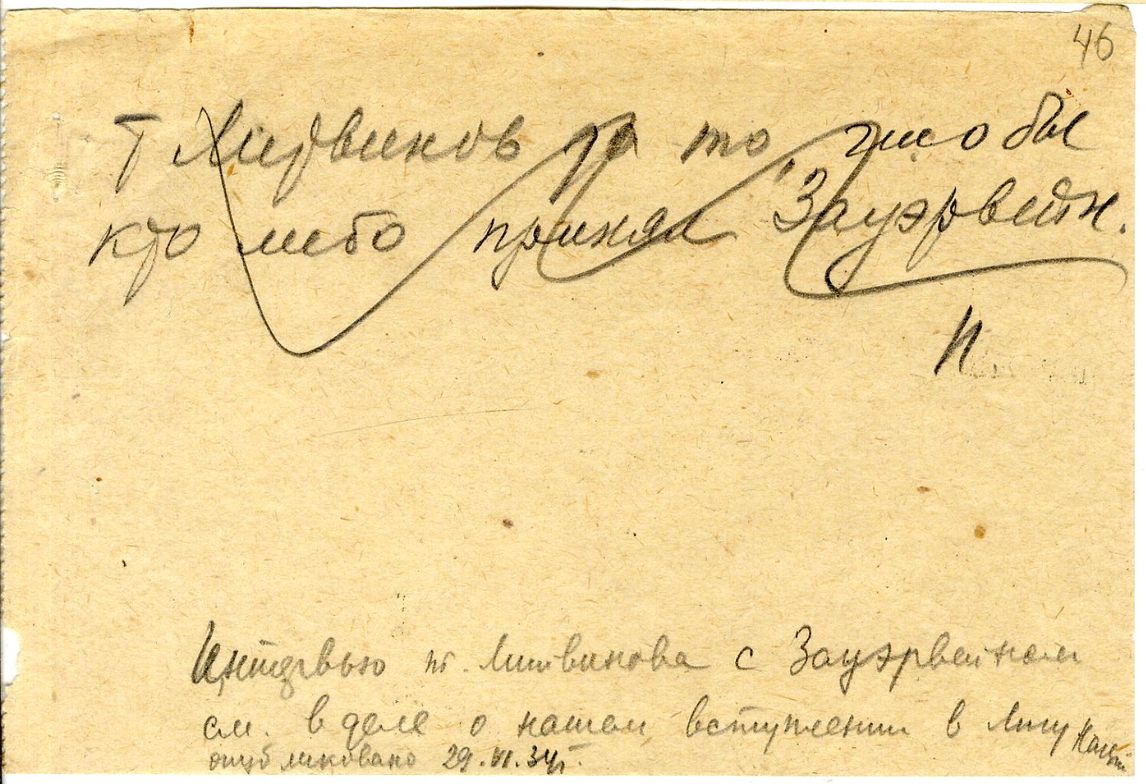 46
Т Литвинов за то чтобы
кто либо принял Зауэрвейн.
П
Интервью т. Литвинова с Зауэрвейном
см. в деле о нашем вступлении в Лигу Наций
опубликовано 29.VI.34г.